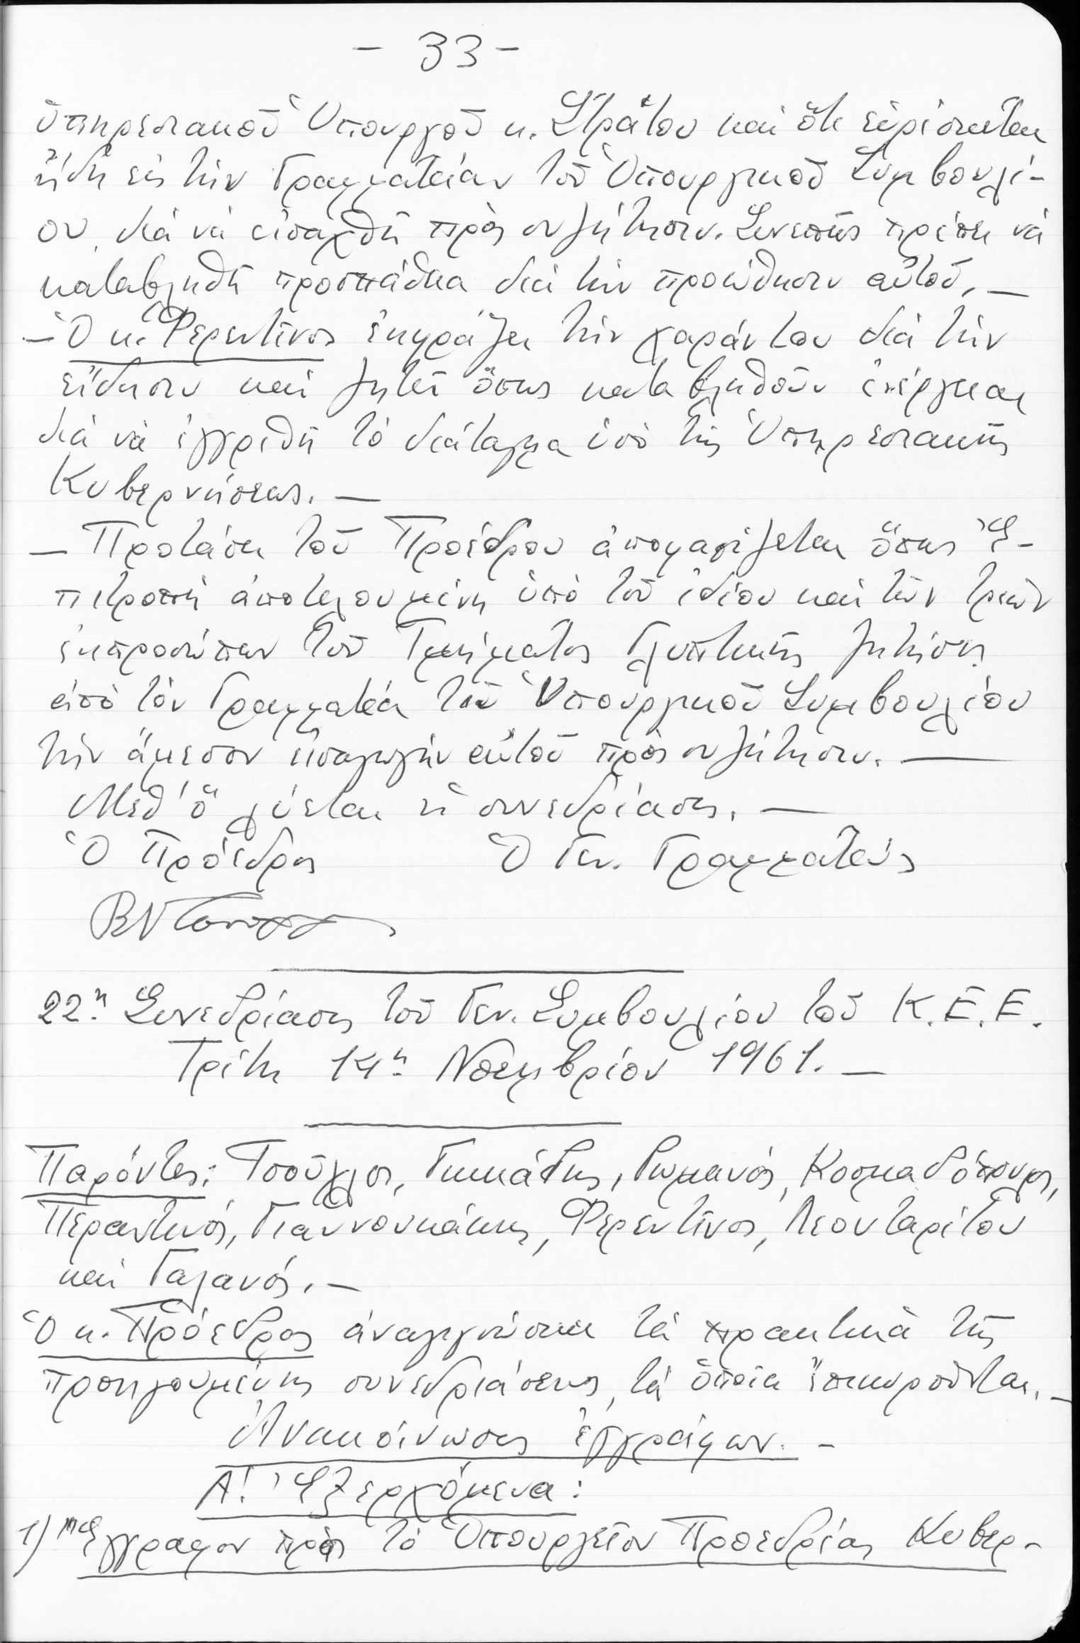 - 33 -
ὑπηρεσιακοῦ Ὑπουργοῦ κ. Στράτου καὶ ὅτι εὑρίσκεται
ἤδη εἰς τὴν Γραμματείαν τοῦ Ὑπουργικοῦ Συμβουλί-
ου, διὰ νὰ εἰσαχθῆ πρὸς συζήτησιν. Συνεπῶς πρέπει νὰ
καταβληθῆ προσπάθεια διὰ τὴν προώθησιν αὐτοῦ. —
— Ὁ κ. Φερεντῖνος ἐκφράζει τὴν χαράν του διὰ τὴν
εἴδησιν καὶ ζητεῖ ὅπως καταβληθοῦν ἐνέργειαι
διὰ νὰ ἐγκριθῆ τὸ διάταγμα ὑπὸ τῆς Ὑπηρεσιακῆς
Κυβερνήσεως. —
— Προτάσει τοῦ Προέδρου ἀποφασίζεται ὅπως Ἐ-
πιτροπὴ ἀποτελουμένη ὑπὸ τοῦ ἰδίου καὶ τῶν τριῶν
ἐκπροσώπων τοῦ Τμήματος Γλυπτικῆς ζητήσῃ
ἀπὸ τὸν Γραμματέα τοῦ Ὑπουργικοῦ Συμβουλίου
τὴν ἄμεσον εἰσαγωγὴν αὐτοῦ πρὸς συζήτησιν. —
Μεθ' ὃ λύεται ἡ συνεδρίασις. —
Ὁ Πρόεδρος Ὁ Γεν. Γραμματεὺς
22α Συνεδρίασις τοῦ Γεν. Συμβουλίου τοῦ Κ.Ε.Ε.
Τρίτη 14η Νοεμβρίου 1961. —
Παρόντες: Τσοῦχλος, Γιωμανός, Κοσμαδόπουλος,
Περαντινός, Γιαννουκάκης, Φερεντῖνος, Λεονταρίτου
καὶ Γαλανός. —
Ὁ κ. Πρόεδρος ἀναγιγνώσκει τὰ πρακτικὰ τῆς
προηγουμένης συνεδριάσεως, τὰ ὁποῖα ἐπικυροῦνται. —
Ἀνακοίνωσις ἐγγράφων. —
Α'. Ἐξερχόμενα:
1) Ἔγγραφον πρὸς τὸ Ὑπουργεῖον Προεδρίας Κυβερ-